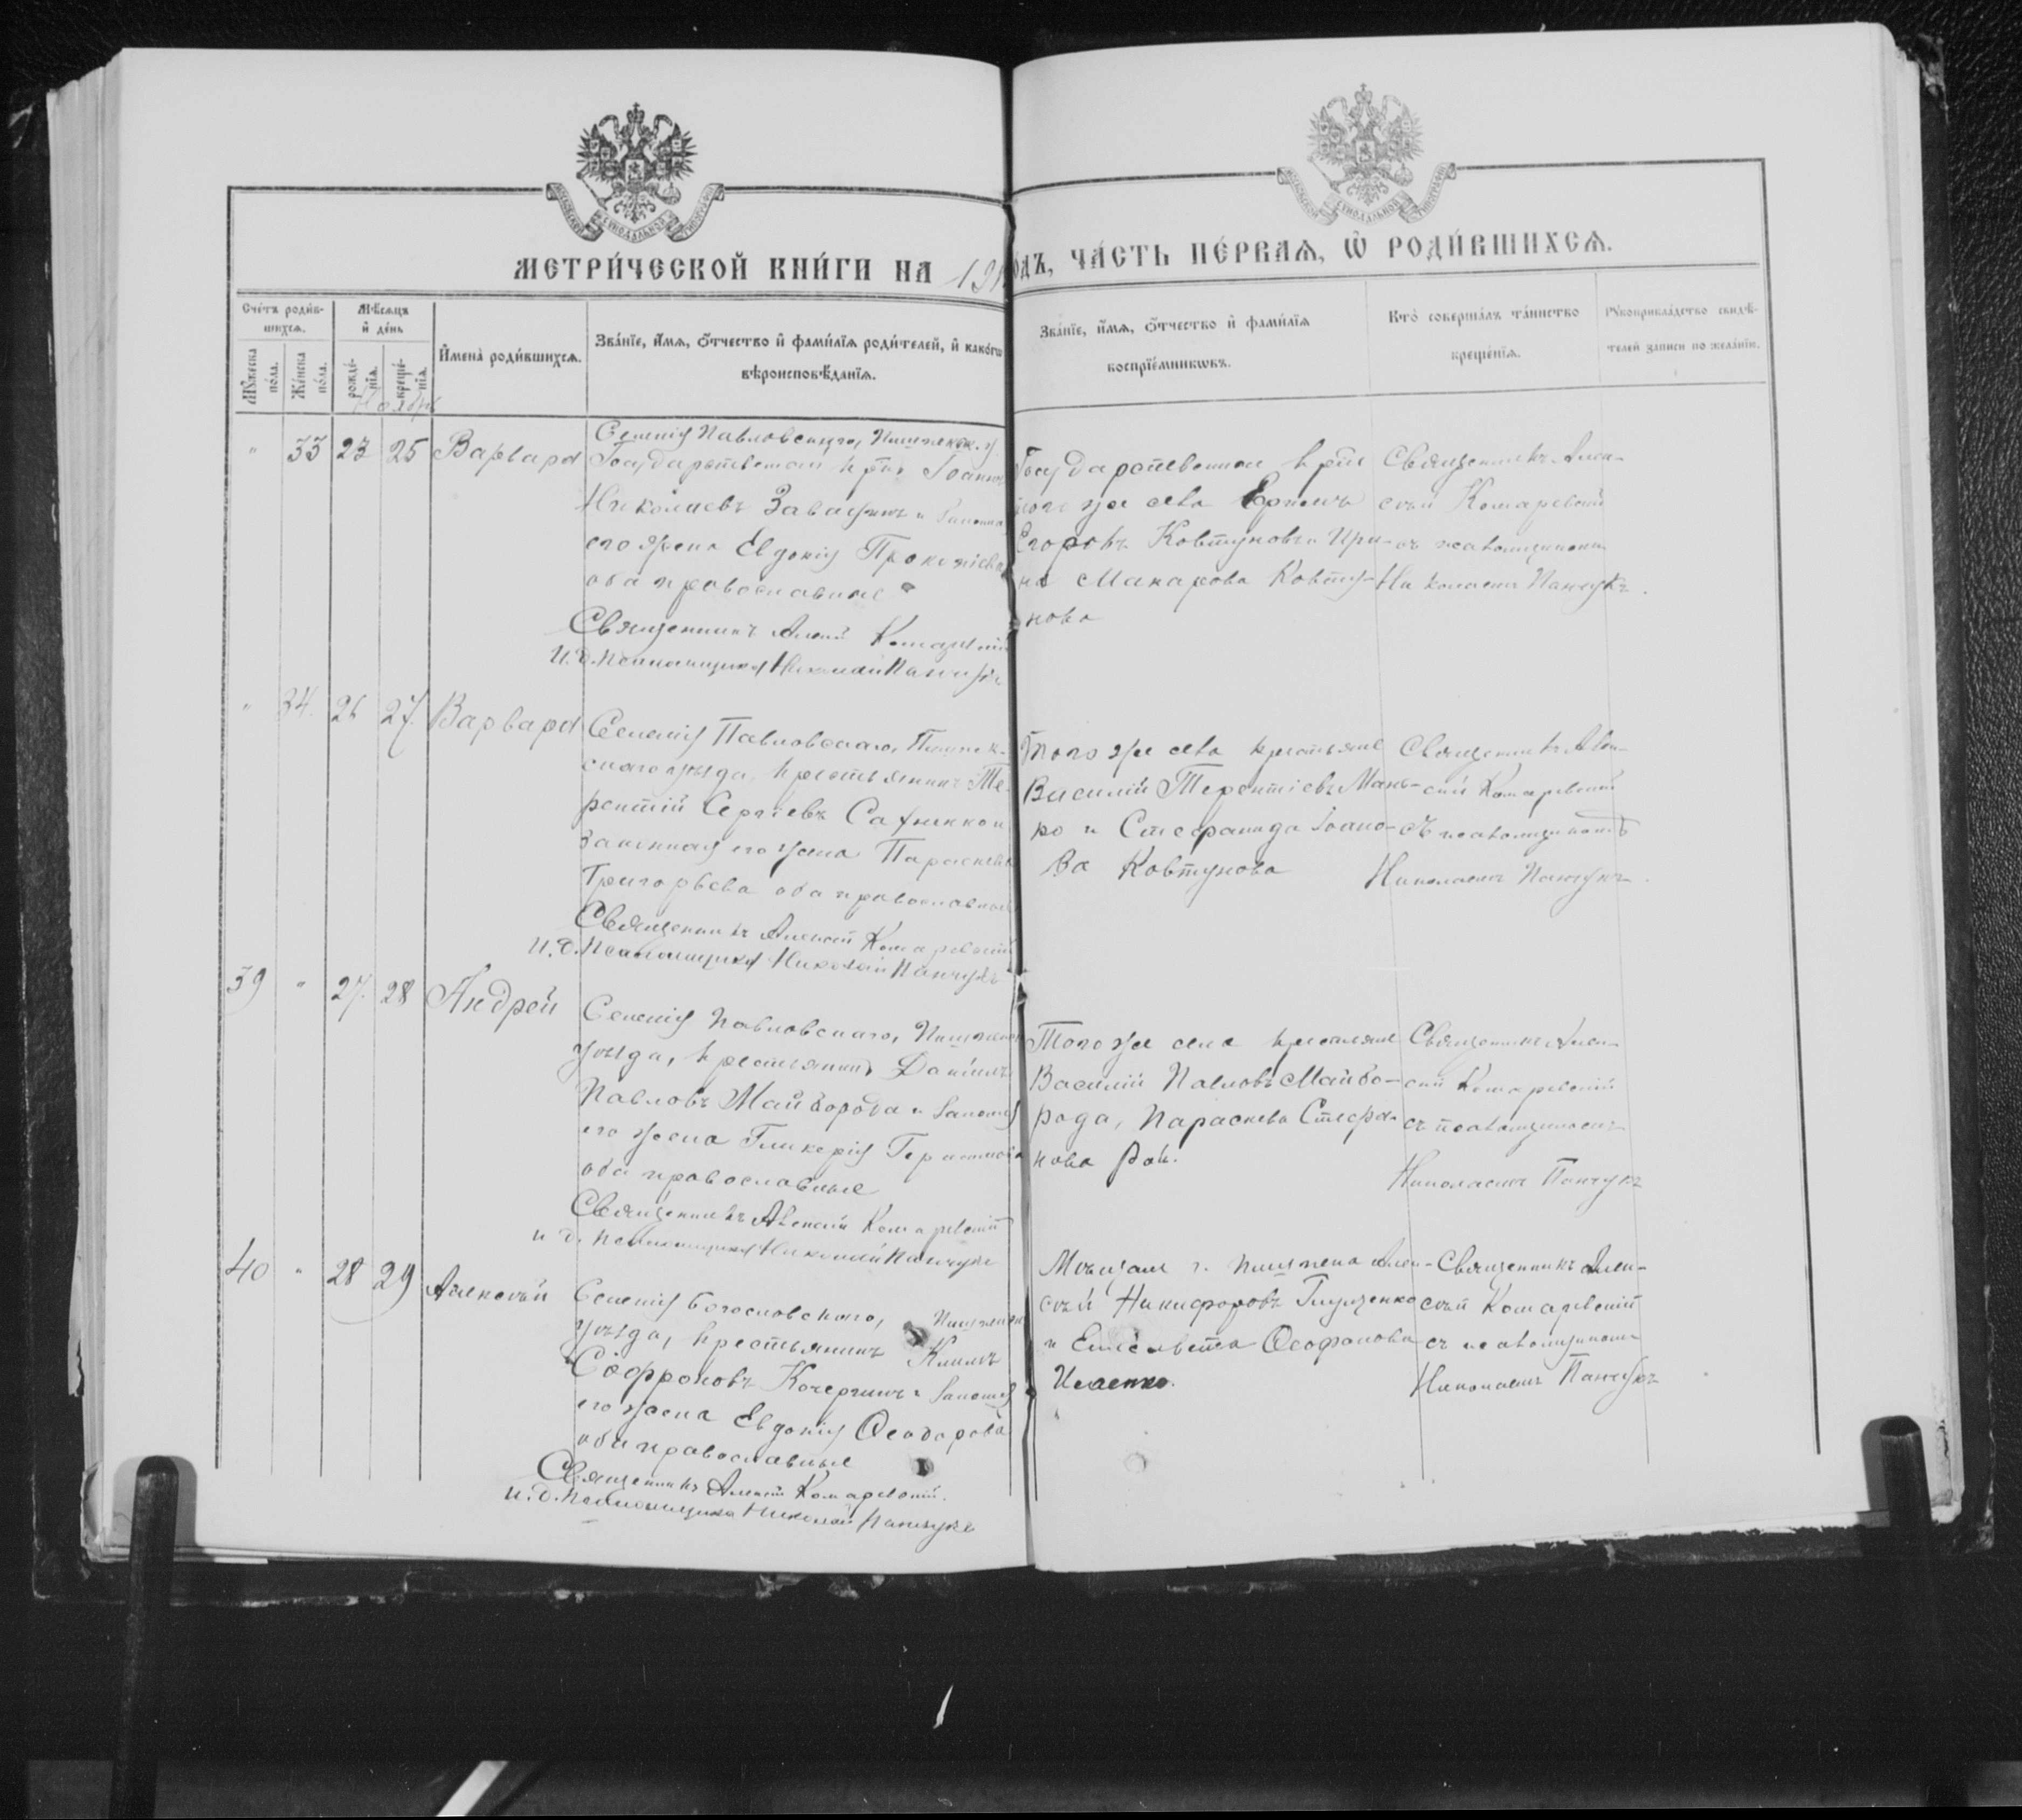 МЕТРИ́ЧЕСКОЙ КНИ́ГИ НА 191
ОДЪ, ЧА́СТЬ ПЕ́РВАЯ, Ѡ҆ РОДИ́ВШИХСѦ.
Сче́тъ роди́в-
шихсѧ.
Мꙋ́жеска
по́ла.
Же́нска
по́ла.
Мѣ́сѧцъ
и҆ де́нь
рожде́-
нїѧ.
креще́-
нїѧ.
И҆мена̀ роди́вшихсѧ.
Зва́нїе, и҆́мѧ, ѻ҆́тчество и҆ фами́лїѧ роди́телей, и҆ како́гѡ
вѣроисповѣ́данїѧ.
Зва́нїе, и҆́мѧ, ѻ҆́тчество и҆ фами́лїѧ
воспрїе́мникѡвъ.
Кто̀ соверша́лъ та́инство
креще́нїѧ.
Рꙋкоприкла́дство свидѣ́-
телей записи по жела́нїю.
Ноябрь
" 33 23 25 Варвара
Селенія Павловскаго,
Іоаннъ
Николаевъ
его жена Евдокія Прокопіева
оба православные
Священникъ Алексѣй Комаревскій
И. д. Псаломщика Николай Панчукъ
того же села Ефимъ
Егоровъ Ковтуновъ и Ири-
на Макарова Ковту-
нова
Священникъ Алек-
сѣй Комаревскій
съ псаломщикомъ
Николаемъ Панчукъ.
" 34. 26 27. Варвара
Селенія Павловскаго, Пишпек-
скаго уѣзда, крестьянинъ Те-
рентій Сергіевъ
законная его жена Параскева
Григорьева оба православные
Священникъ Алексѣй Комаревскій
И. д. Псаломщика Николай Панчукъ
Того же села крестьяне
Василій Терентіевъ
и Стефанида Іоано-
ва Ковтунова
Священникъ Алек-
сѣй Комаревскій
съ псаломщикомъ
Николаемъ Панчукъ.
39 " 27. 28 Андрей
Селенія Павловскаго,
уѣзда, крестьянинъ Даніилъ
Павловъ Майборода и законная
его жена Гликерія
оба православные
Священникъ Алексѣй Комаревскій
и д. Псаломщика Николай Панчукъ
Того же села крестьяне
Василій Павловъ Майбо-
рода, Параскева Стефа-
нова
Священникъ Алек-
сѣй Комаревскій
съ псаломщикомъ
Николаемъ Панчукъ
40 " 28 29 Алексѣй
Селенія Богословскаго,
уѣзда, крестьянинъ Климъ
Софроновъ Кочергинъ и законная
его жена Евдокія Ѳеодорова
оба православные
Священникъ Алексѣй Комаревскій.
И. д. Псаломщика Николай Панчукъ
Мѣщане г. Пишпека Алек-
сѣй Никифоровъ Глущенко
и Елисавета Ѳеофанова
Священникъ Алек-
сѣй Комаревскій
съ псаломщикомъ
Николаемъ Панчукъ